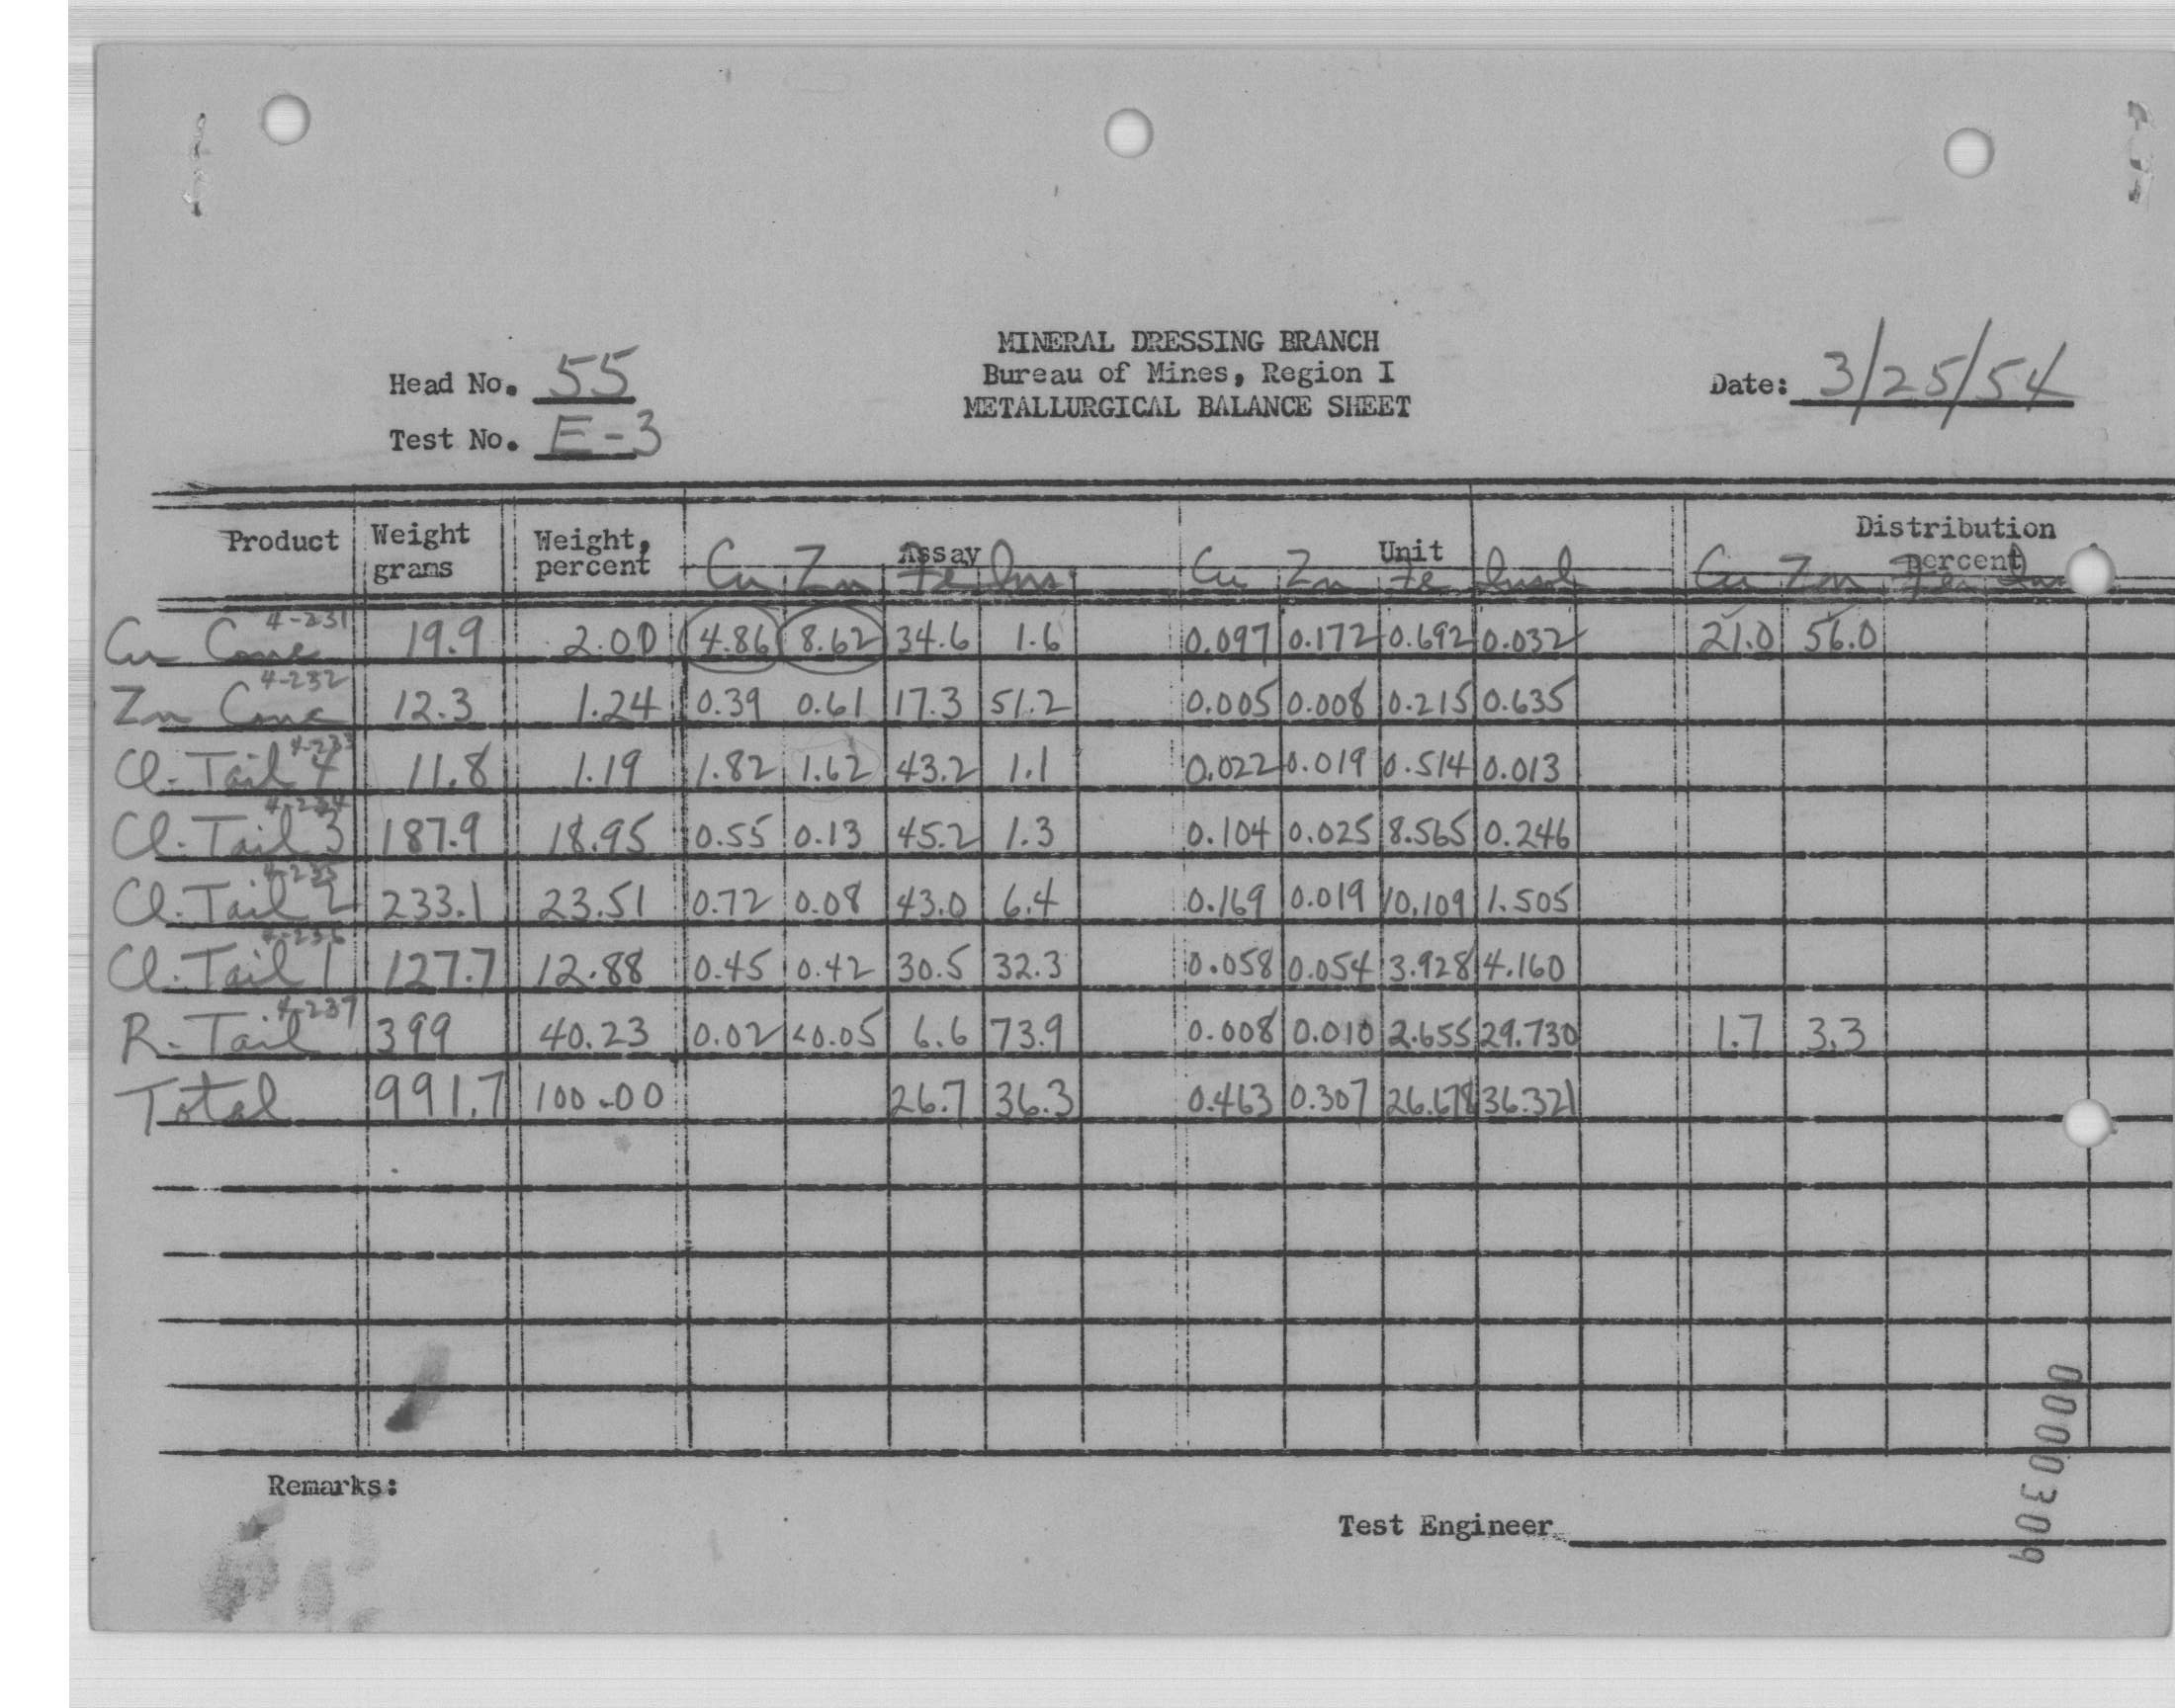 MINERAL DRESSING BRANCH
Head No. 55 Bureau of Mines, Region I Date: 3/25/54
METALLURGICAL BALANCE SHEET
Test No. E-3
Product Weight grams Weight, percent Assay Unit Distribution percent
Cu Zn Fe Ins. Cu Zn Fe Insol Cu Zn Fe
4-231
Cu Conc 19.9 2.00 4.86 8.62 34.6 1.6 0.097 0.172 0.692 0.032 21.0 56.0
4-232
Zn Conc 12.3 1.24 0.39 0.61 17.3 51.2 0.005 0.008 0.215 0.635
4-233
Cl. Tail 4 11.8 1.19 1.82 1.62 43.2 1.1 0.022 0.019 0.514 0.013
4-234
Cl. Tail 3 187.9 18.95 0.55 0.13 45.2 1.3 0.104 0.025 8.565 0.246
4-235
Cl. Tail 2 233.1 23.51 0.72 0.08 43.0 6.4 0.169 0.019 10.109 1.505
4-236
Cl. Tail 1 127.7 12.88 0.45 0.42 30.5 32.3 0.058 0.054 3.928 4.160
4-237
R. Tail 399 40.23 0.02 <0.05 6.6 73.9 0.008 0.010 2.655 29.730 1.7 3.3
Total 991.7 100.00 26.7 36.3 0.463 0.307 26.678 36.321
Remarks:
Test Engineer
0000309